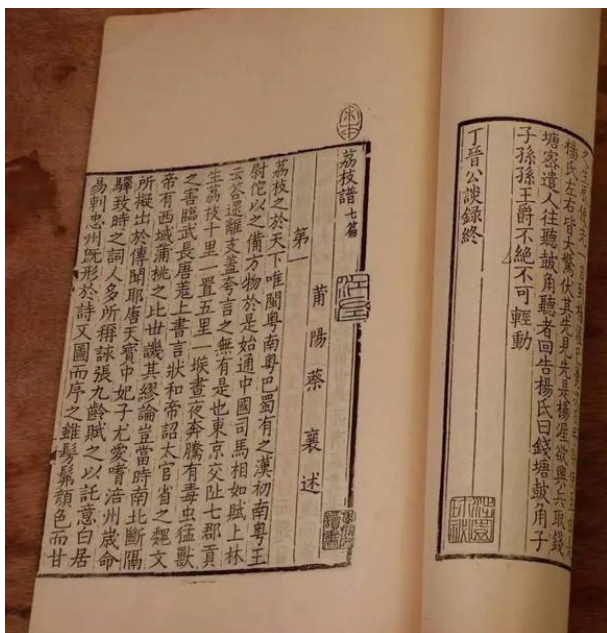 楊氏左右皆大驚伏其先見先是楊渥欲興兵取錢
塘密遣人往聽鼓角聽者回告楊氏曰錢塘鼓角子
子孫孫王爵不絕不可輕動
丁晉公談録終
荔枝譜 七篇
莆陽蔡襄述
第一
荔枝之於天下唯閩粤南粤巴蜀有之漢初南粤王
尉佗以之備方物於是始通中國司馬相如賦上林
云荅遝離支蓋夸言之無有是也東京交阯七郡貢
生荔枝十里一置五里一堠晝夜奔騰有毒虫猛獸
之害臨武長唐羌上書言狀和帝詔太官省之魏文
帝有西域蒲桃之比世譏其繆論豈當時南北斷隔
所擬出於傳聞耶唐天寳中妃子尤愛嗜涪州歲命
驛致時之詞人多所稱詠張九齡賦之以託意白居
易刺忠州旣形於詩又圖而序之雖髣髴顔色而甘